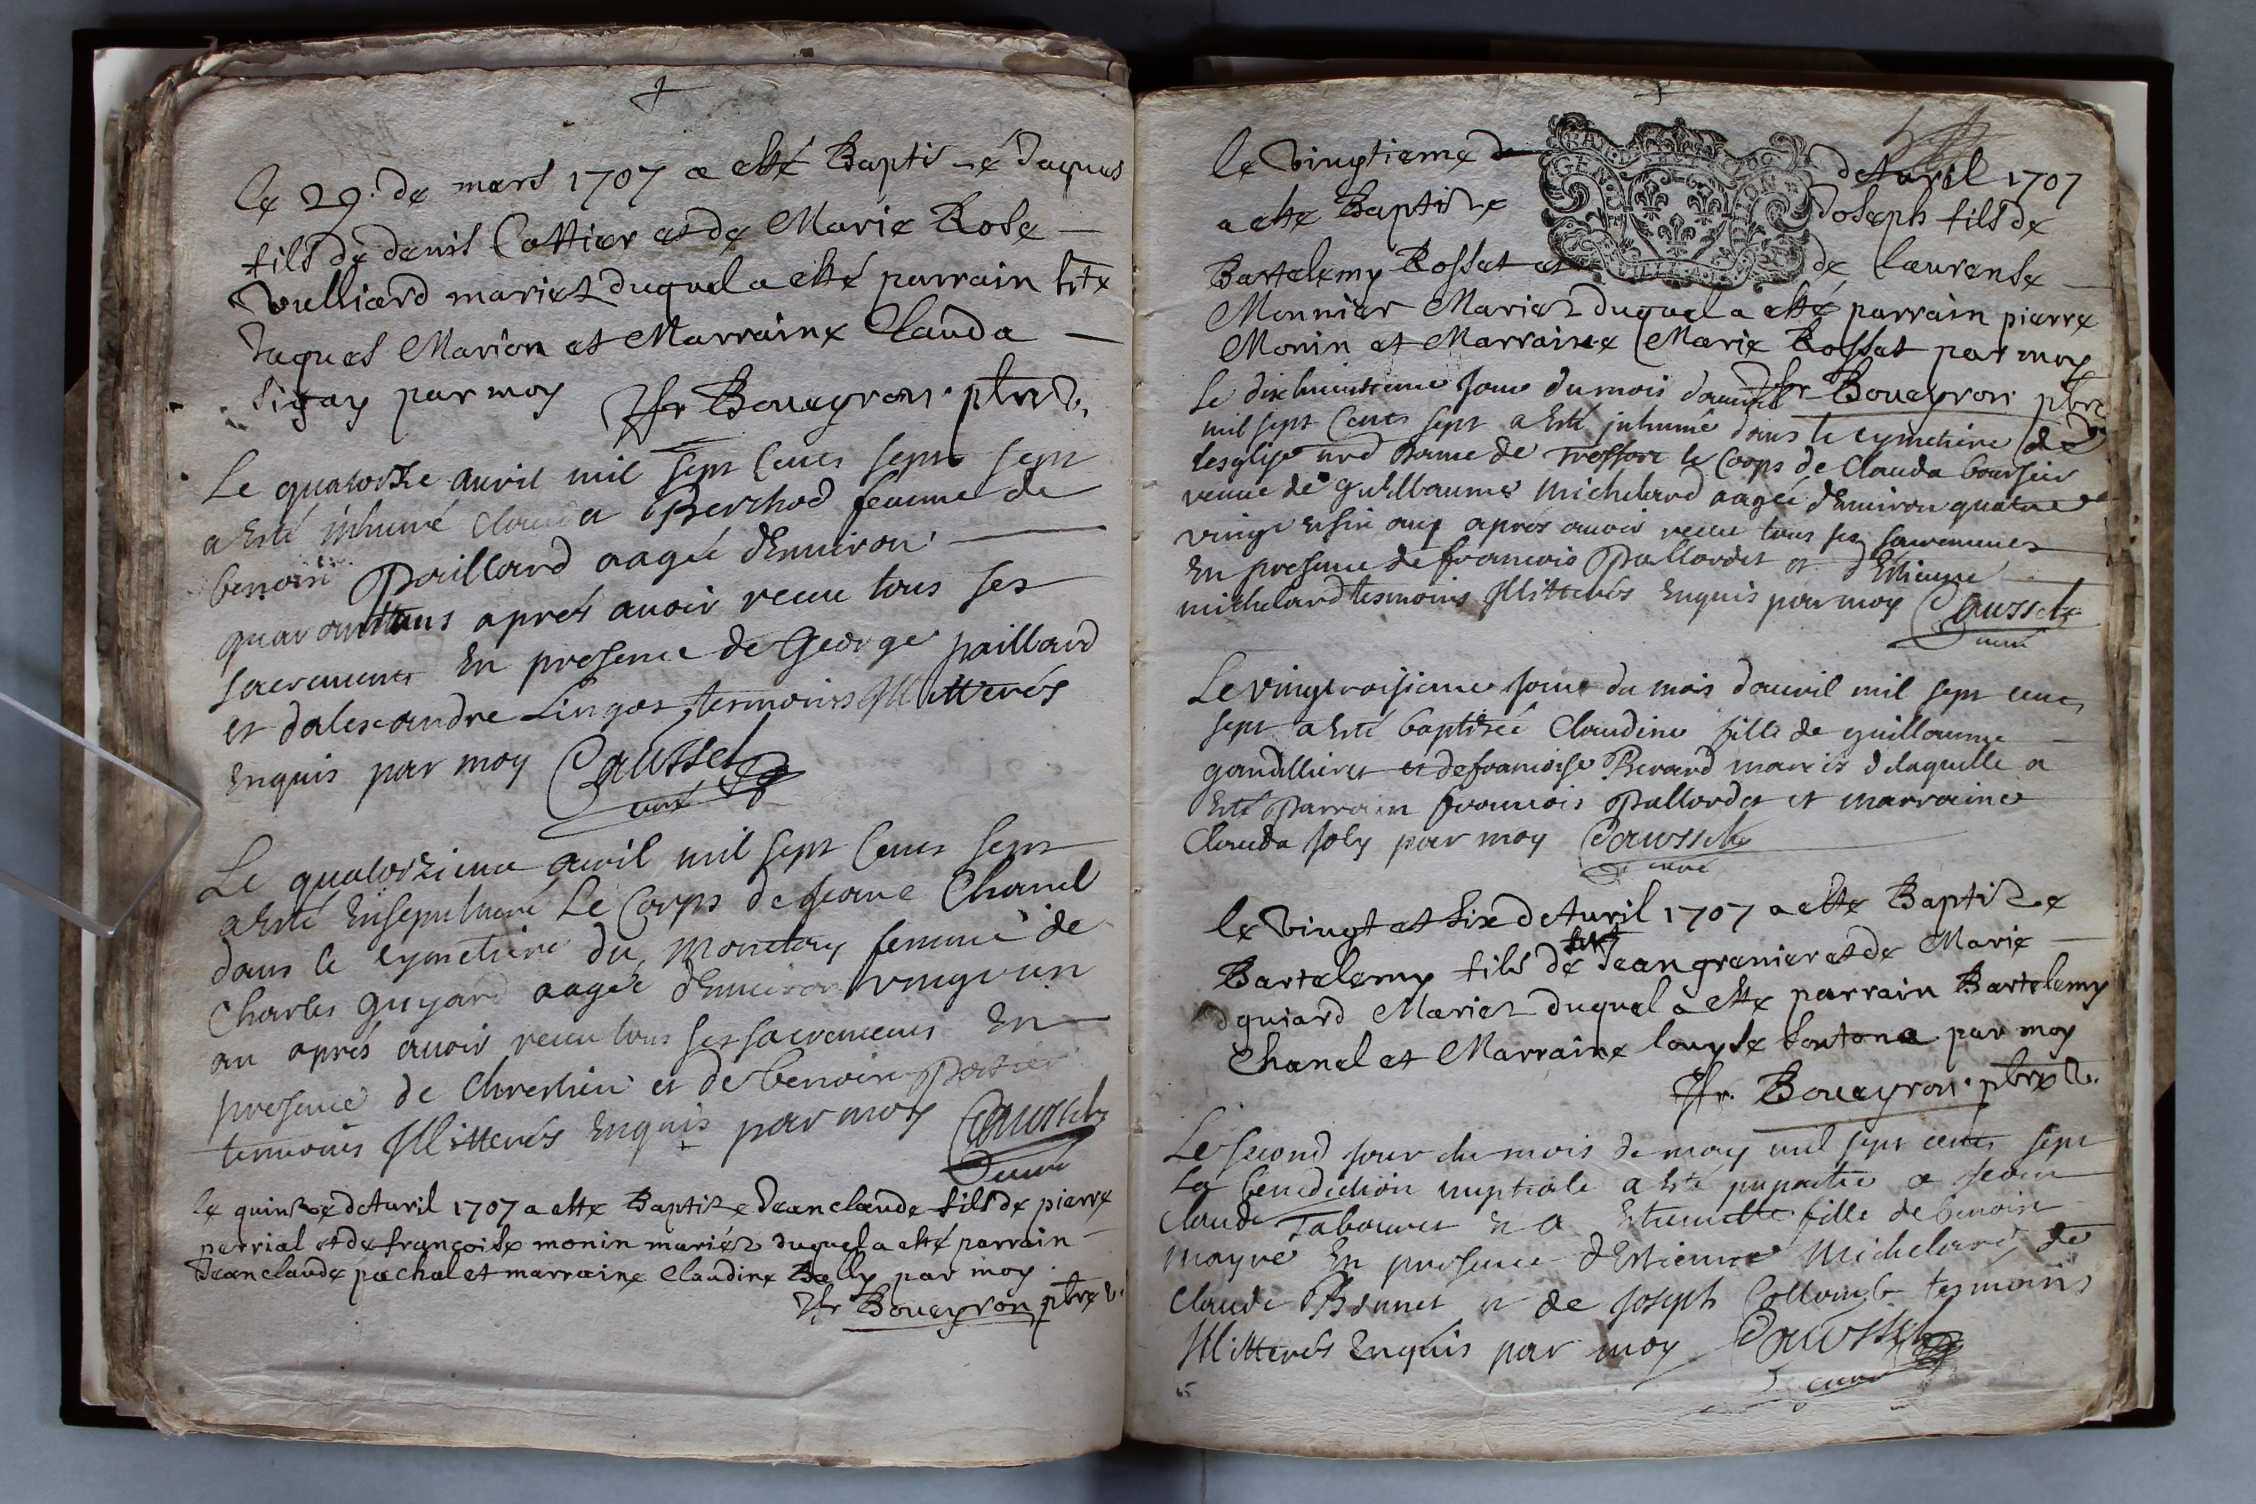 Le 29. de mars 1707 a esté Baptisé Jaques
fils de denis Cottier et de Marie Rose
Vulliard mariez duquel a esté parrain
Jaques Marion et Marraine Clauda
Sigay par moy Boueyron pbre
Le quatorze auril mil sept Cents sept
a Esté inhumé Clauda Berthod femme de
benoist Paillard aagée d'Enuiron
quarante ans aprés auoir receu tous ses
sacrements En presence de George paillard
et d'alexandre Lingot tesmoins Illitterés
Enquis par moy Cousset
curé
Le quatorzieme auril mil sept Cents sept
a Esté Ensepulturé Le Corps de Jeane Chanel
dans le Cymetiere du Monetay femme de
Charles guyard aagée d'Enuiron vingt un
an aprés auoir receu tous ses sacrements En
presence de Chrestien et de benoist
temoins Illitterés Enquis par moy Cousset
curé
le quinze d'Auril 1707 a este Baptize Jean claude fils de pierre
perrial et de françoise monin mariez duquel a esté parrain
Jean claude pachal et marraine Claudine Bally par moy
Boueyron pbre
le vingtieme d'Auril 1707
a este Baptize Joseph fils de
Bartelemy Rossat et de Laurense
Monnier Mariez duquel a esté parrain pierre
Monin et Marraine Marie Rossat par moy
Boueyron pbre
Le dixhuictieme Jour du mois d'auril
mil sept Cents sept a Esté inhumé dans le cymetiere de
lesglise nre Dame de Treffort le Corps de Clauda boursier
veuue de guillaume Michelard aagée d'Enuiron quatre
vingt ans aprés auoir receu tous ses sacrements
En presence de francois Pallordet et d'Estienne
michelard tesmoins Illitterés Enquis par moy Cousset
curé
Le vingtroisieme Jour du mois d'auril mil sept cents
sept a Esté baptizée Claudine fille de guillaume
gandillieret et de francoise Berard mariés de laquelle a
Esté Parrain francois Pallordet et marraine
Clauda Joly par moy Cousset
curé
le vingt et six d'Auril 1707 a este Baptize
Bartelemy fils de feu Jean grenier et de Marie
guiard Mariez duquel a este parrain Bartelemy
Chanel et Marraine Louyse par moy
Boueyron pbre
Le second Jour du mois de may mil sept cents sept
La benediction nuptiale a Esté impartie a Jean
Claude Tabouret et a Estiennette fille de benoist
mayre En presence d'Estienne Michelard de
Claude Bonnet et de Joseph Collomb tesmoins
Illitterés Enquis par moy Cousset
curé